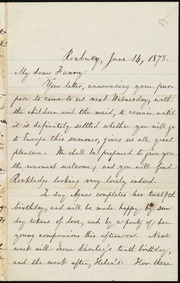 Roxbury, June 16, 1878.
My dear Fanny:
Your letter, announcing your pur-
pose to come to us next Wednesday, with
the children and the maid, to remain until
it is definitely settled whether you will go
to Europe this summer, gives us all great
pleasure. We shall be prepared to give you
the warmest welcome; and you will find
Rockledge looking very lovely indeed.
To-day Agnes completes her twelfth
birthday, and will be made happy by sun-
dry tokens of love, and by a party of her
young companions this afternoon. Next
week will come Charley's tenth birthday,
and the week after, Helen's. How these